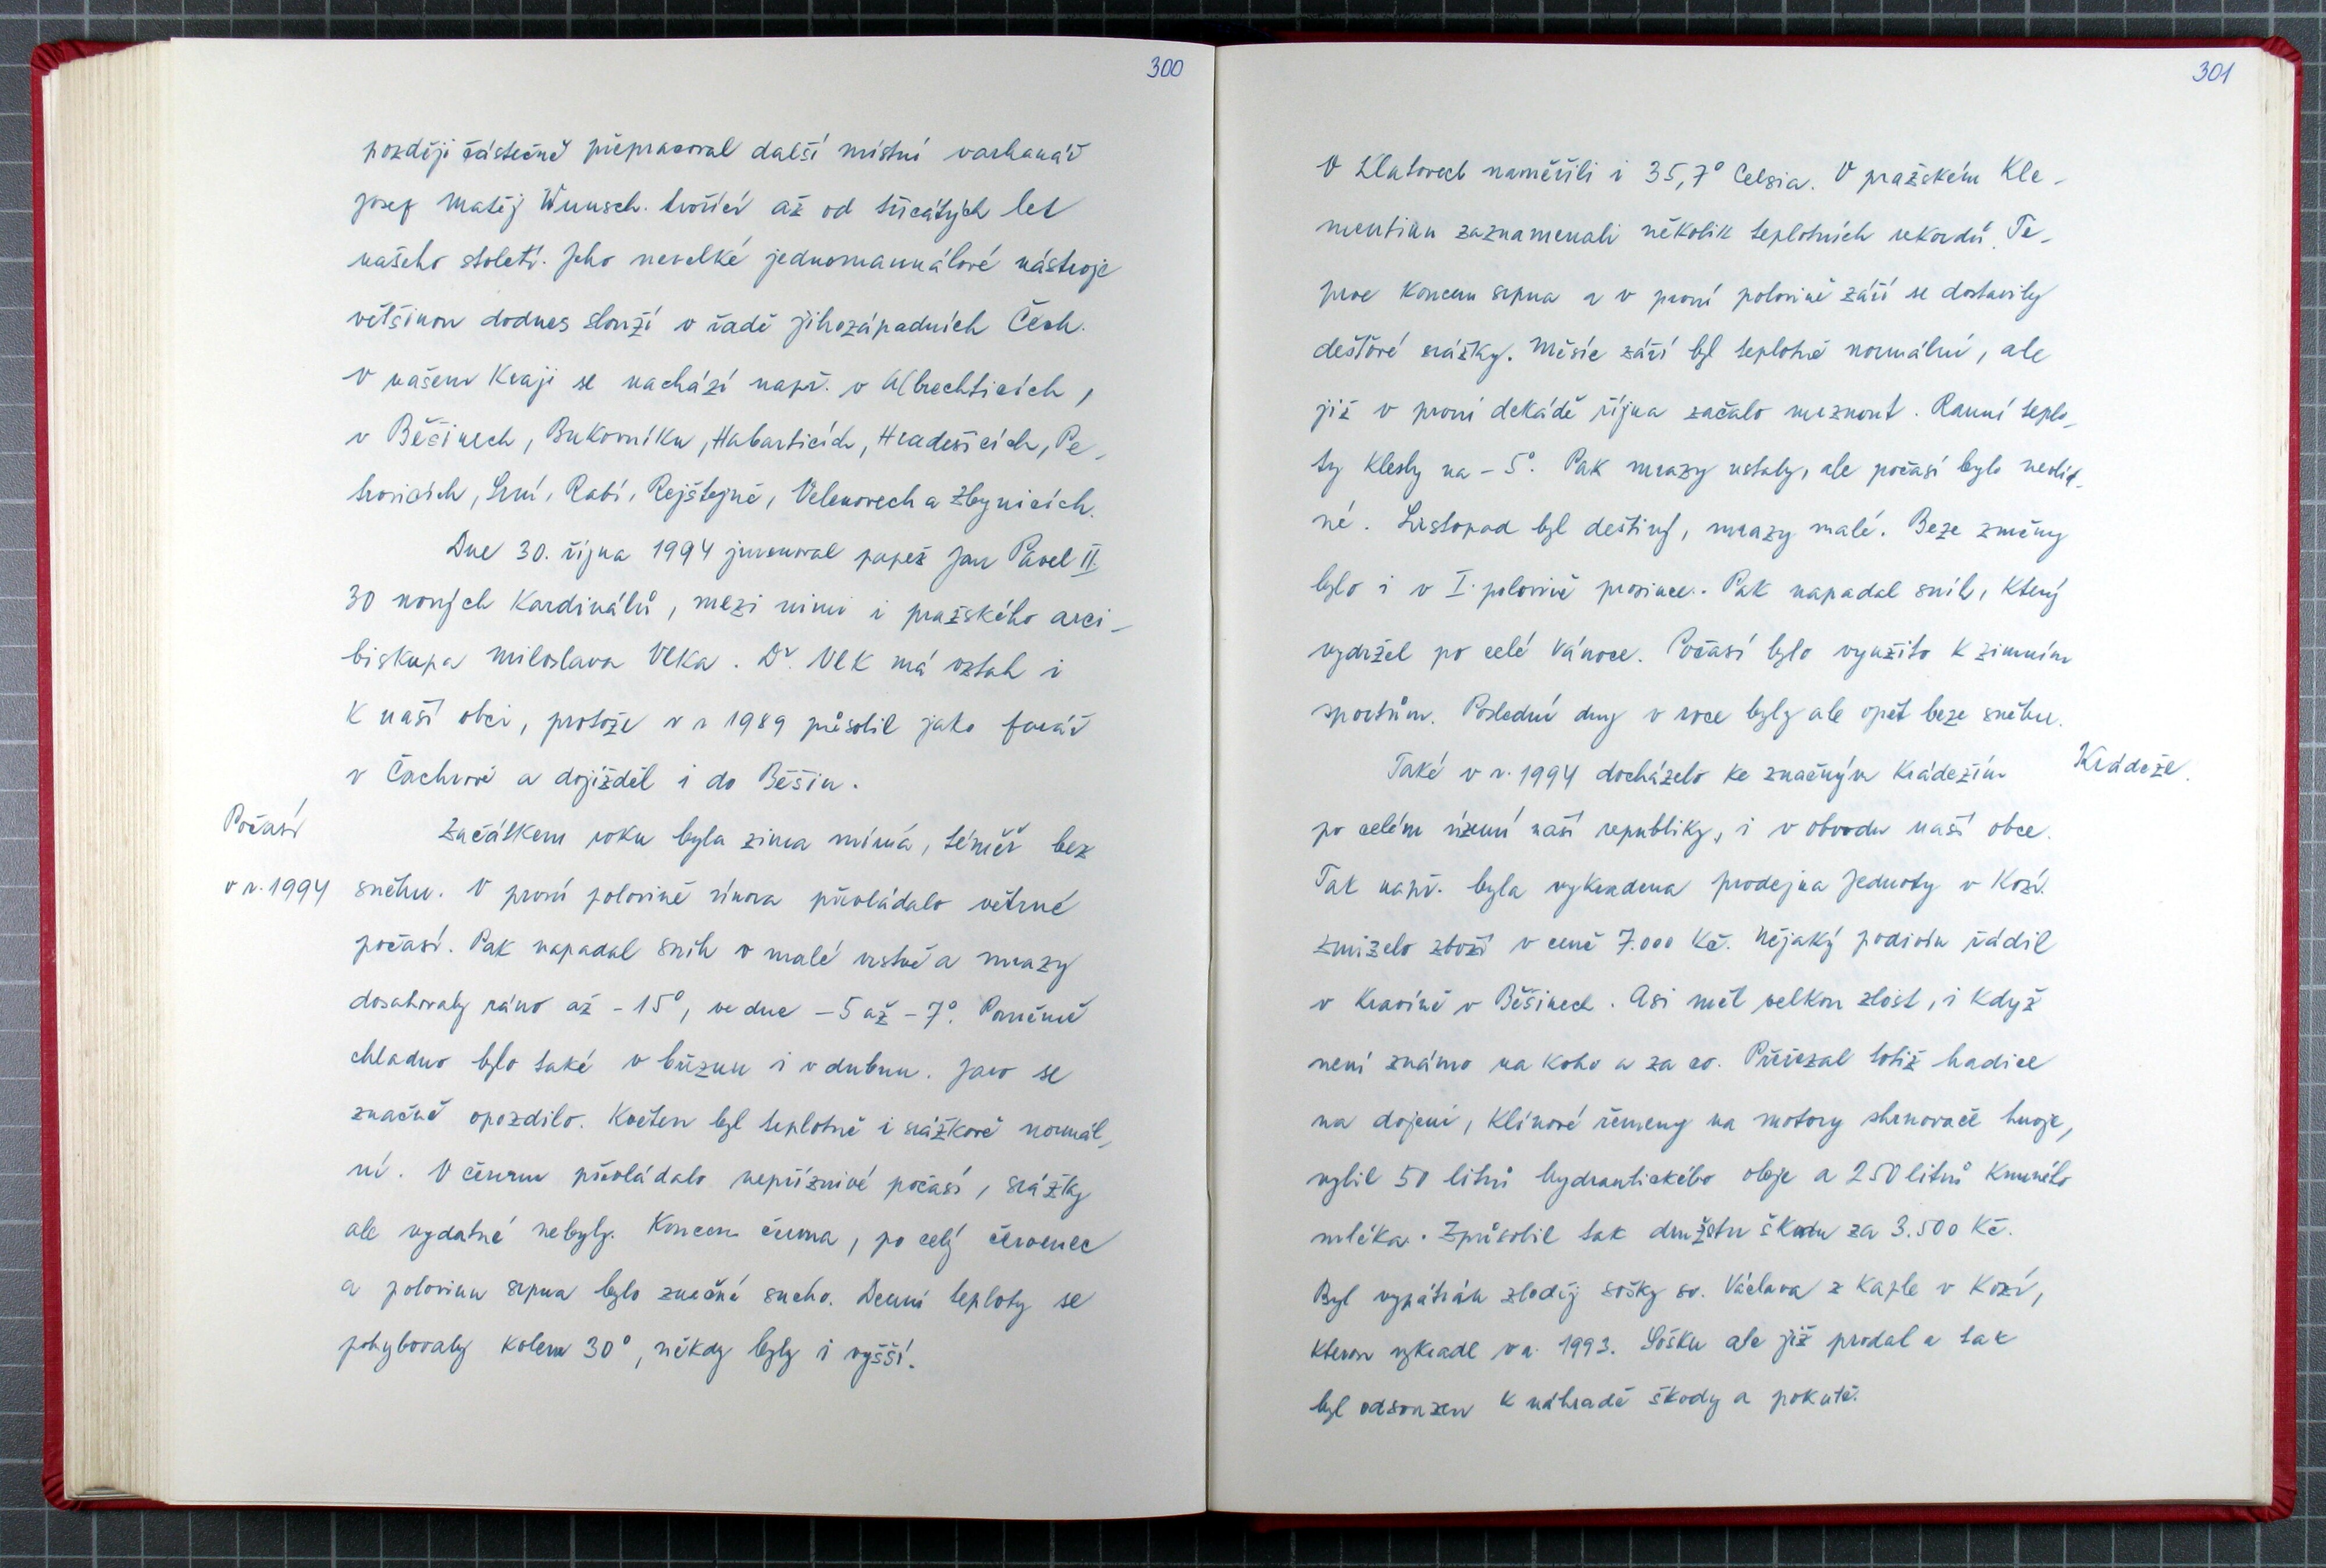 300
později částečně přepracoval další místní varhanář
Josef Matěj Wunsch tvořící až od třicátých let
našeho století. Jeho nevelké jednomanuálové nástroje
většinou dodnes slouží v řadě jihozápadních Čech.
V našem kraji se nachází např. v Albrechticích,
v Běšinech, Bukovníku, Habarticích, Hradešicích, Pe-
trovicích, Srní, Rabí, Rejštejně, Velenovech a Zbynicích.
Dne 30. října 1994 jmenoval papež Jan Pavel II.
30 nových kardinálů, mezi nimi i pražského arci-
biskupa Miloslava Vlka. Dr. Vlk má vztah i
k naší obci, protože v r 1989 působil jako farář
v Čachrově a dojížděl i do Běšin.
Počasí
v r. 1994
Začátkem roku byla zima mírná, téměř bez
sněhu. V první polovině února převládalo větrné
počasí. Pak napadal sníh v malé vrstvě a mrazy
dosahovaly ráno až -15°, ve dne -5 až -7°. Poměrně
chladno bylo také v březnu i v dubnu. Jaro se
značně opozdilo. Květen byl teplotně i srážkově normál-
ní. V červnu převládalo nepříznivé počasí, srážky
ale vydatné nebyly. Koncem června, po celý červenec
a polovinu srpna bylo značné sucho. Denní teploty se
pohybovaly kolem 30°, někdy byly i vyšší.
301
V Klatovech naměřili i 35,7° Celsia. V pražském Kle-
mentinu zaznamenali několik teplotních rekordů. Te-
prve koncem srpna a v první polovině září se dostavily
dešťové srážky. Měsíc září byl teplotně normální, ale
již v první dekádě října začalo mrznout. Ranní teplo-
ty klesly na -5°. Pak mrazy ustaly, ale počasí bylo nevlíd-
né. Listopad byl deštivý, mrazy malé. Beze změny
bylo i v I. polovině prosince. Pak napadal sníh, který
vydržel po celé Vánoce. Počasí bylo využito k zimním
sportům. Poslední dny v roce byly ale opět beze sněhu.
Krádeže.
Také v r. 1994 docházelo ke značným krádežím
po celém území naší republiky, i v obvodu naší obce.
Tak např. byla vykradena prodejna Jednoty v Kozí.
Zmizelo zboží v ceně 7.000 Kč. Nějaký podivín řádil
v kravíně v Běšinech. Asi měl velkou zlost, i když
není známo na koho a za co. Přeřezal totiž hadice
na dojení, klínové řemeny na motory shrnovače hnoje,
vylil 50 litrů hydraulického oleje a 250 litrů krmného
mléka. Způsobil tak družstvu škodu za 3.500 Kč.
Byl vypátrán zloděj sošky sv. Václava z kaple v Kozí,
kterou vykradl v r. 1993. Sošku ale již prodal a tak
byl odsouzen k náhradě škody a pokutě.